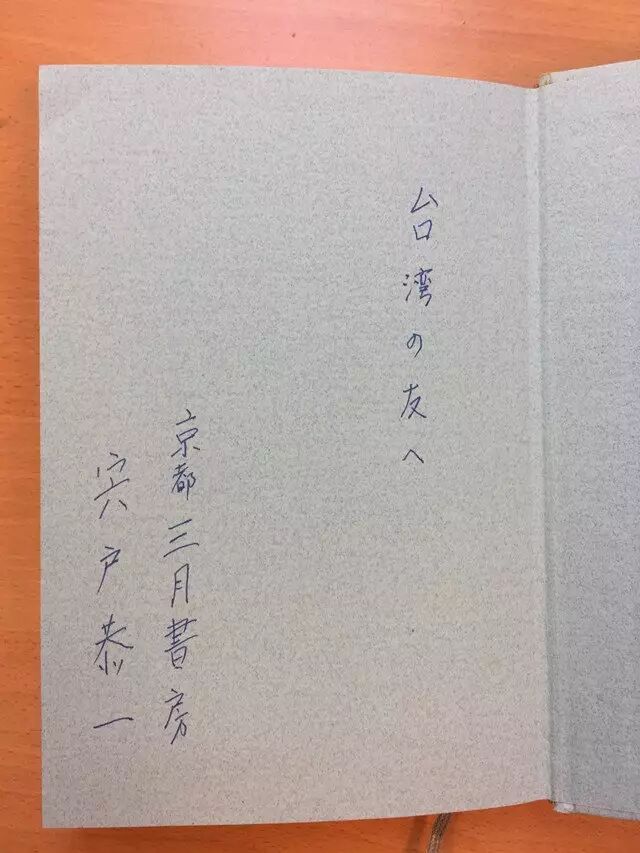 台湾の友へ
京都 三月書房
宍戸恭一